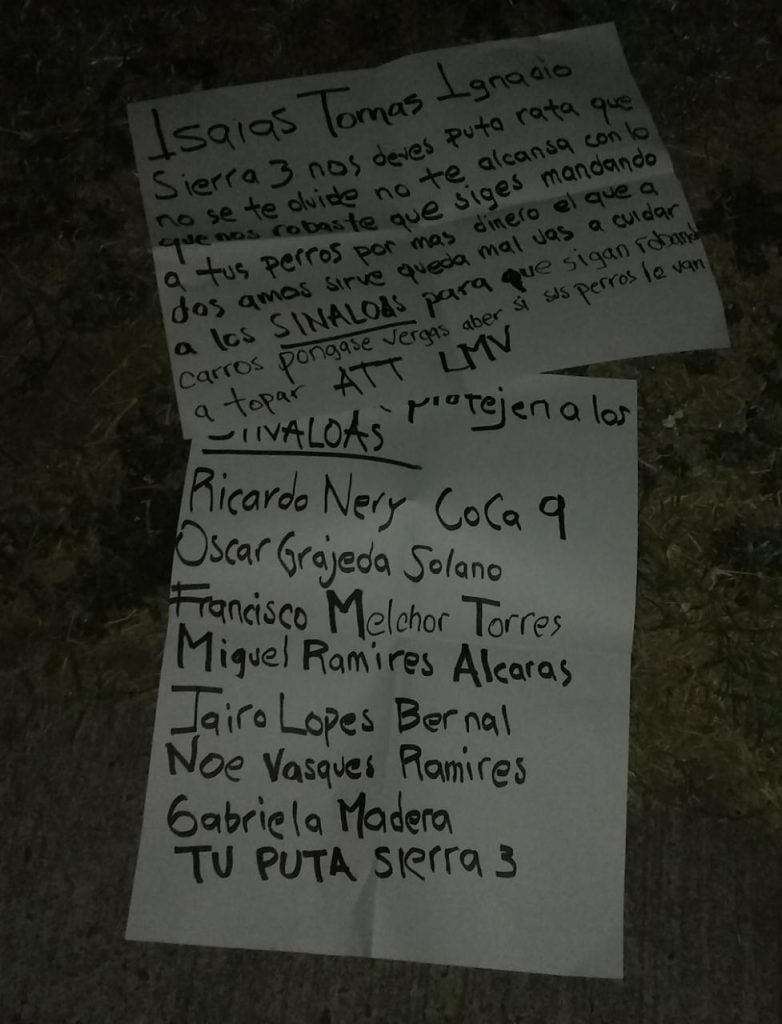 Isaias Tomas Ignacio
Sierra 3 nos deves puta rata que
no se te olvide no te alcansa con lo
que nos robaste que siges mandando
a tus perros por mas dinero el que a
dos amos sirve queda mal vas a cuidar
a los SINALOAS para que sigan robando
carros pongase vergas aber si sus perros le van
a topar ATT LMV
SINALOAS protejen a los
Ricardo Nery CoCa 9
Oscar Grajeda Solano
Francisco Melchor Torres
Miguel Ramires Alcaras
Jairo Lopes Bernal
Noe Vasques Ramires
Gabriela Madera
TU PUTA Sierra 3